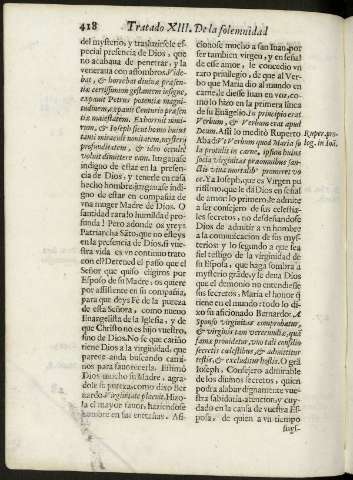 418 Tratado XIII. De la solemnidad
del mysterio, y trasluzirsele es-
pecial presencia de Dios, que
no acabaua de penetrar, y la
veneraua con assombro. Vide-
bat, & horrebat diuinæ præsen-
tiæ certissimum gestantem insigne,
expauit Petrus potentiæ magni-
tudinem, expauit Centurio præsen-
tiæ maiestatem. Exhorruit nimi-
rum, & Ioseph sicut homo huius
tanti miraculi nouitatem, mysterij
profunditatem, & ideo occulte
voluit dimittere eam. Iuzgauase
indigno de estar en la presencia
de Dios, y tenerle en casa
hecho hombre: juzgauase indi-
gno de estar en compañia de
vna muger Madre de Dios. O
santidad rara! o humildad pro-
funda! Pero adonde os yreys
Patriarcha Santo, que no esteys
en la presencia de Dios, si vues-
tra vida es vn continuo trato
con el? Detened el passo que el
Señor que quiso elegiros por
Esposo de su Madre, os quiere
por assistente en su compañia,
para que deys Fè de la pureza
de esta Señora, como nueuo
Euangelista de la Iglesia, y de
que Christo no es hijo vuestro,
sino de Dios. No sè que cariño
tiene Dios a la virginidad, que
parece anda buscando cami-
nos para fauorecerla. Estimò
Dios mucho su Madre, agra-
dole su pureza, como dixo Ber
nardo Virginitate placuit. Hizo-
la el mayor fauor, haziendose
hombre en sus entrañas. Afi-
cionose mucho a san Iuan, por
ser tambien virgen, y en señal
de esse amor, le concediò vn
raro priuilegio, de que al Ver-
bo que Maria dio al mundo en
carne, le diesse Iuan en voz, co-
mo lo hizo en la primera linea
de su Euangelio. In principio erat
Verbum, & Verbum erat apud
Deum. Assi lo meditò Ruperto
Abad: Vt Verbum quod Maria so
la protulit in carne, ipsum huius
socia virginitas præ omnibus san-
ctis vita mortali promeret vo-
ce. Ya Ioseph, que es Virgen pu
rissimo, que le dà Dios en señal
de amor? lo primero, le admite
a ser consejero de sus celestia-
les secretos, no desdeñandose
Dios de admitir a vn hombre
a la comunicacion de sus mys-
terios: y lo segundo a que sea
fiel testigo de la virginidad de
su Esposa, que haga sombra a
mysterio grãde, y le deua Dios
que el demonio no entendiesse
sus secretos, Maria el honor q̃
tiene en el mundo: todo lo di-
xo su aficionado Bernardo: A
Sponso virginitas comprobatur,
& virginis tam verecundiæ, quã
famæ prouidetur, vno tali consilio
secretis cœlestibus, & admittitur
testis, & excluditur hostis. O grã
Ioseph, Consejero admirable
de los diuinos secretos, quien
podra alabar dignamente vues-
tra sabiduria, atencion, y cuy-
dado en la causa de vuestra Es-
posa, de quien a vn tiempo
Ruper. pro-
log. in Ioã.